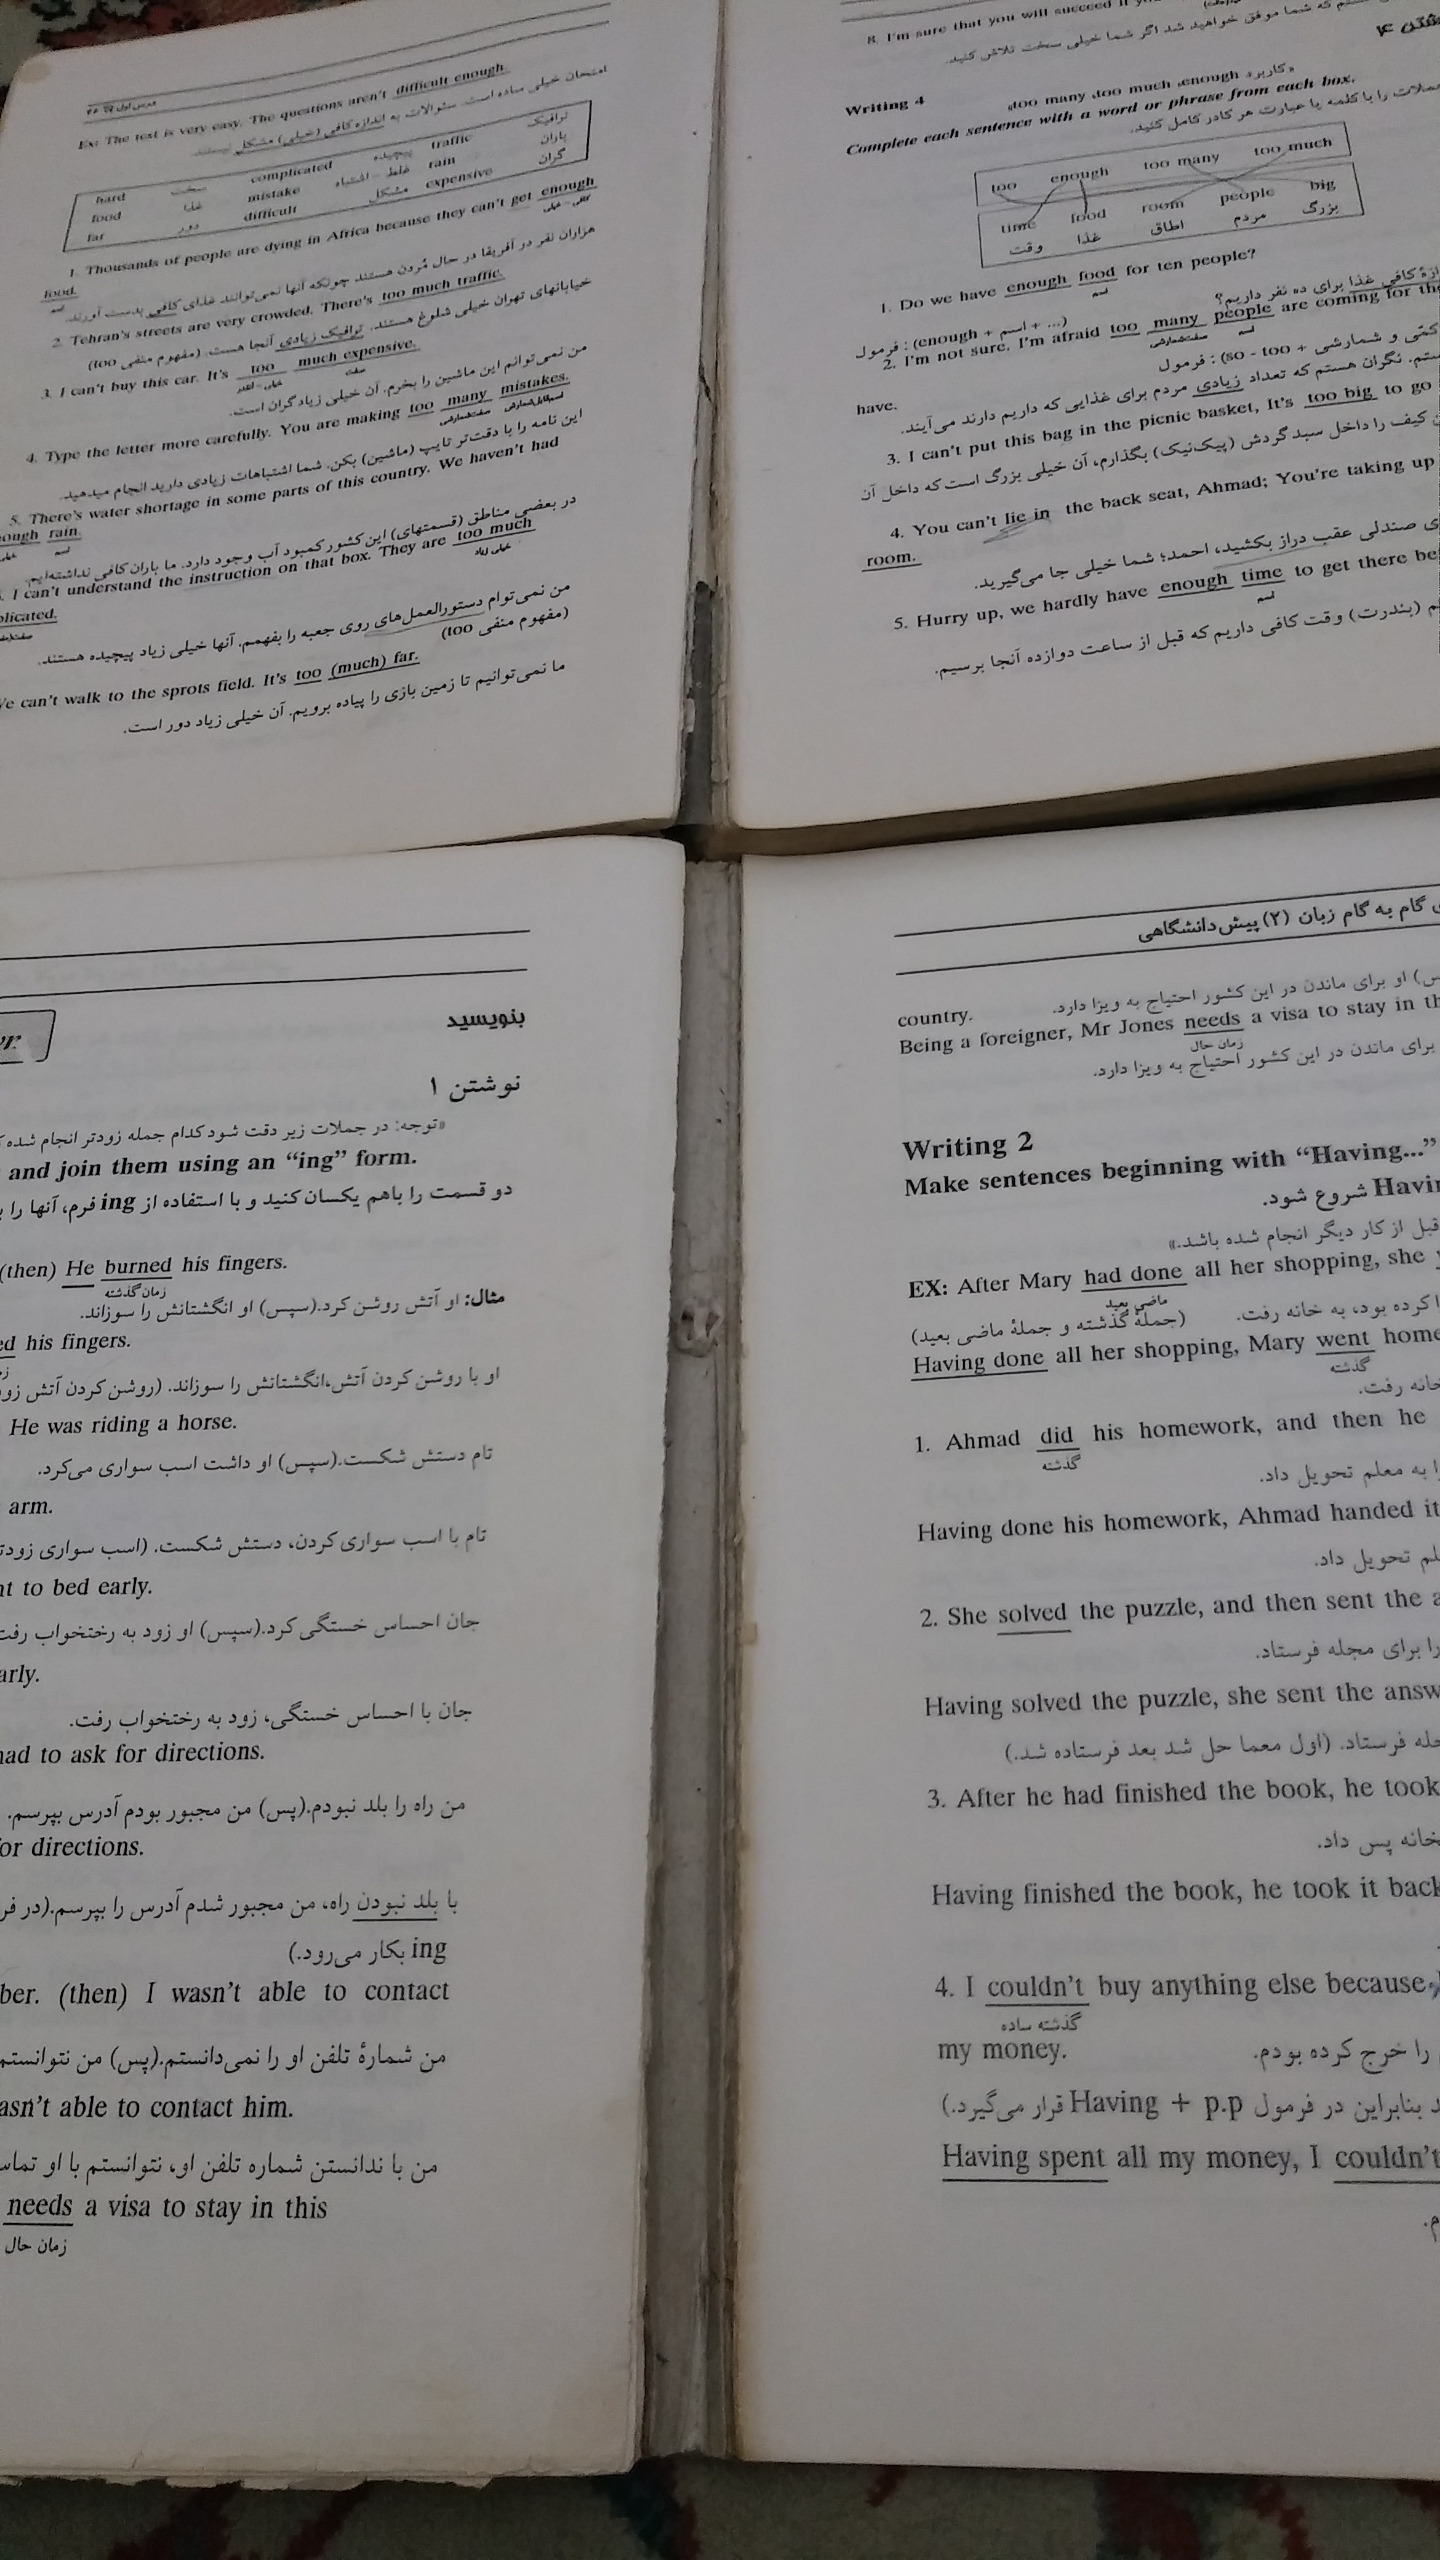 درس اول
Ex: The text is very easy. The questions aren't difficult enough.
امتحان خیلی ساده است. سئوالات به اندازه کافی (خیلی) مشکل نیستند.
hard سخت complicated پیچیده traffic ترافیک
food غذا mistake غلط - اشتباه rain باران
far دور difficult مشکل expensive گران
1. Thousands of people are dying in Africa because they can't get enough
کافی - خیلی
food.
اسم
هزاران نفر در آفریقا در حال مُردن هستند چونکه آنها نمی‌توانند غذای کافی بدست آورند.
2. Tehran's streets are very crowded. There's too much traffic.
خیابانهای تهران خیلی شلوغ هستند. ترافیک زیادی آنجا هست. (مفهوم منفی too)
3. I can't buy this car. It's too much expensive.
صفت
من نمی‌توانم این ماشین را بخرم. آن خیلی زیاد گران است.
4. Type the letter more carefully. You are making too many mistakes.
این نامه را با دقت‌تر تایپ (ماشین) بکن. شما اشتباهات زیادی دارید انجام میدهید.
5. There's water shortage in some parts of this country. We haven't had
ough rain.
اسم
در بعضی مناطق (قسمتهای) این کشور کمبود آب وجود دارد. ما باران کافی نداشته‌ایم.
. I can't understand the instruction on that box. They are too much
خیلی زیاد
plicated.
من نمی‌توام دستورالعمل‌های روی جعبه را بفهمم. آنها خیلی زیاد پیچیده هستند.
(مفهوم منفی too)
Ve can't walk to the sprots field. It's too (much) far.
ما نمی‌توانیم تا زمین بازی را پیاده برویم. آن خیلی زیاد دور است.
8. I'm sure that you will succeed if
که شما موفق خواهید شد اگر شما خیلی سخت تلاش کنید.
شتن ۴
Writing 4 «too many ،too much ،enough کاربرد»
Complete each sentence with a word or phrase from each box.
جملات را با کلمه یا عبارت هر کادر کامل کنید.
too enough too many too much
time food room people big
وقت غذا اطاق مردم بزرگ
1. Do we have enough food for ten people?
اسم
کافی غذا برای ده نفر داریم؟
فرمول : (enough + اسم + ...)
2. I'm not sure. I'm afraid too many people are coming for the
صفت‌شمارشی اسم
کمّی و شمارشی + so - too) : فرمول
have.
ستم. نگران هستم که تعداد زیادی مردم برای غذایی که داریم دارند می‌آیند.
3. I can't put this bag in the picnic basket, It's too big to go
کیف را داخل سبد گردش (پیک‌نیک) بگذارم، آن خیلی بزرگ است که داخل آن
4. You can't lie in the back seat, Ahmad; You're taking up
room.
ی صندلی عقب دراز بکشید، احمد؛ شما خیلی جا می‌گیرید.
5. Hurry up, we hardly have enough time to get there be
اسم
م (بندرت) وقت کافی داریم که قبل از ساعت دوازده آنجا برسیم.
بنویسید
نوشتن ۱
«توجه: در جملات زیر دقت شود کدام جمله زودتر انجام شده
and join them using an “ing” form.
دو قسمت را باهم یکسان کنید و با استفاده از ing فرم، آنها را
(then) He burned his fingers.
زمان گذشته
مثال: او آتش روشن کرد.(سپس) او انگشتانش را سوزاند.
ed his fingers.
او با روشن کردن آتش،انگشتانش را سوزاند. (روشن کردن آتش زو
He was riding a horse.
تام دستش شکست.(سپس) او داشت اسب سواری می‌کرد.
arm.
تام با اسب سواری کردن، دستش شکست. (اسب سواری زودت
nt to bed early.
جان احساس خستگی کرد.(سپس) او زود به رختخواب رفت
arly.
جان با احساس خستگی، زود به رختخواب رفت.
had to ask for directions.
من راه را بلد نبودم.(پس) من مجبور بودم آدرس بپرسم.
for directions.
با بلد نبودن راه، من مجبور شدم آدرس را بپرسم.(در فر
ing بکار می‌رود.)
ber. (then) I wasn't able to contact
من شمارهٔ تلفن او را نمی‌دانستم.(پس) من نتوانستم
asn't able to contact him.
من با ندانستن شماره تلفن او، نتوانستم با او تماس
needs a visa to stay in this
زمان حال
ی گام به گام زبان (۲) پیش‌دانشگاهی
س) او برای ماندن در این کشور احتیاج به ویزا دارد.
country.
Being a foreigner, Mr Jones needs a visa to stay in th
زمان حال
برای ماندن در این کشور احتیاج به ویزا دارد.
Writing 2
Make sentences beginning with “Having...”
Havin شروع شود.
قبل از کار دیگر انجام شده باشد.»
EX: After Mary had done all her shopping, she
ماضی بعید
ا کرده بود، به خانه رفت. (جملهٔ گذشته و جملهٔ ماضی بعید)
Having done all her shopping, Mary went home
گذشته
خانه رفت.
1. Ahmad did his homework, and then he
گذشته
را به معلم تحویل داد.
Having done his homework, Ahmad handed it
لم تحویل داد.
2. She solved the puzzle, and then sent the a
را برای مجله فرستاد.
Having solved the puzzle, she sent the answ
جله فرستاد. (اول معما حل شد بعد فرستاده شد.)
3. After he had finished the book, he took
خانه پس داد.
Having finished the book, he took it back
4. I couldn't buy anything else because
گذشته ساده
my money. را خرج کرده بودم.
د بنابراین در فرمول Having + p.p قرار می‌گیرد.)
Having spent all my money, I couldn't
م.